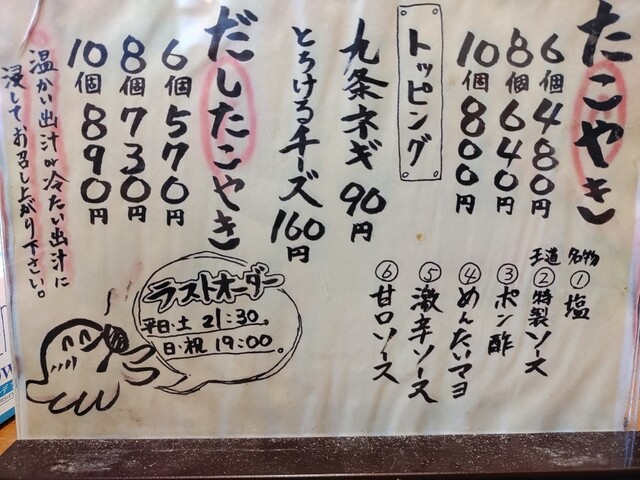 たこやき
6個 480円
8個 640円
10個 800円
名物 ①塩
王道 ②特製ソース
③ポン酢
④めんたいマヨ
⑤激辛ソース
⑥甘口ソース
トッピング
九条ネギ 90円
とろけるチーズ 160円
だしたこやき
6個 570円
8個 730円
10個 890円
温かい出汁or冷たい出汁に
浸してお召し上がり下さい。
ラストオーダー
平日・土 21:30。
日・祝 19:00。